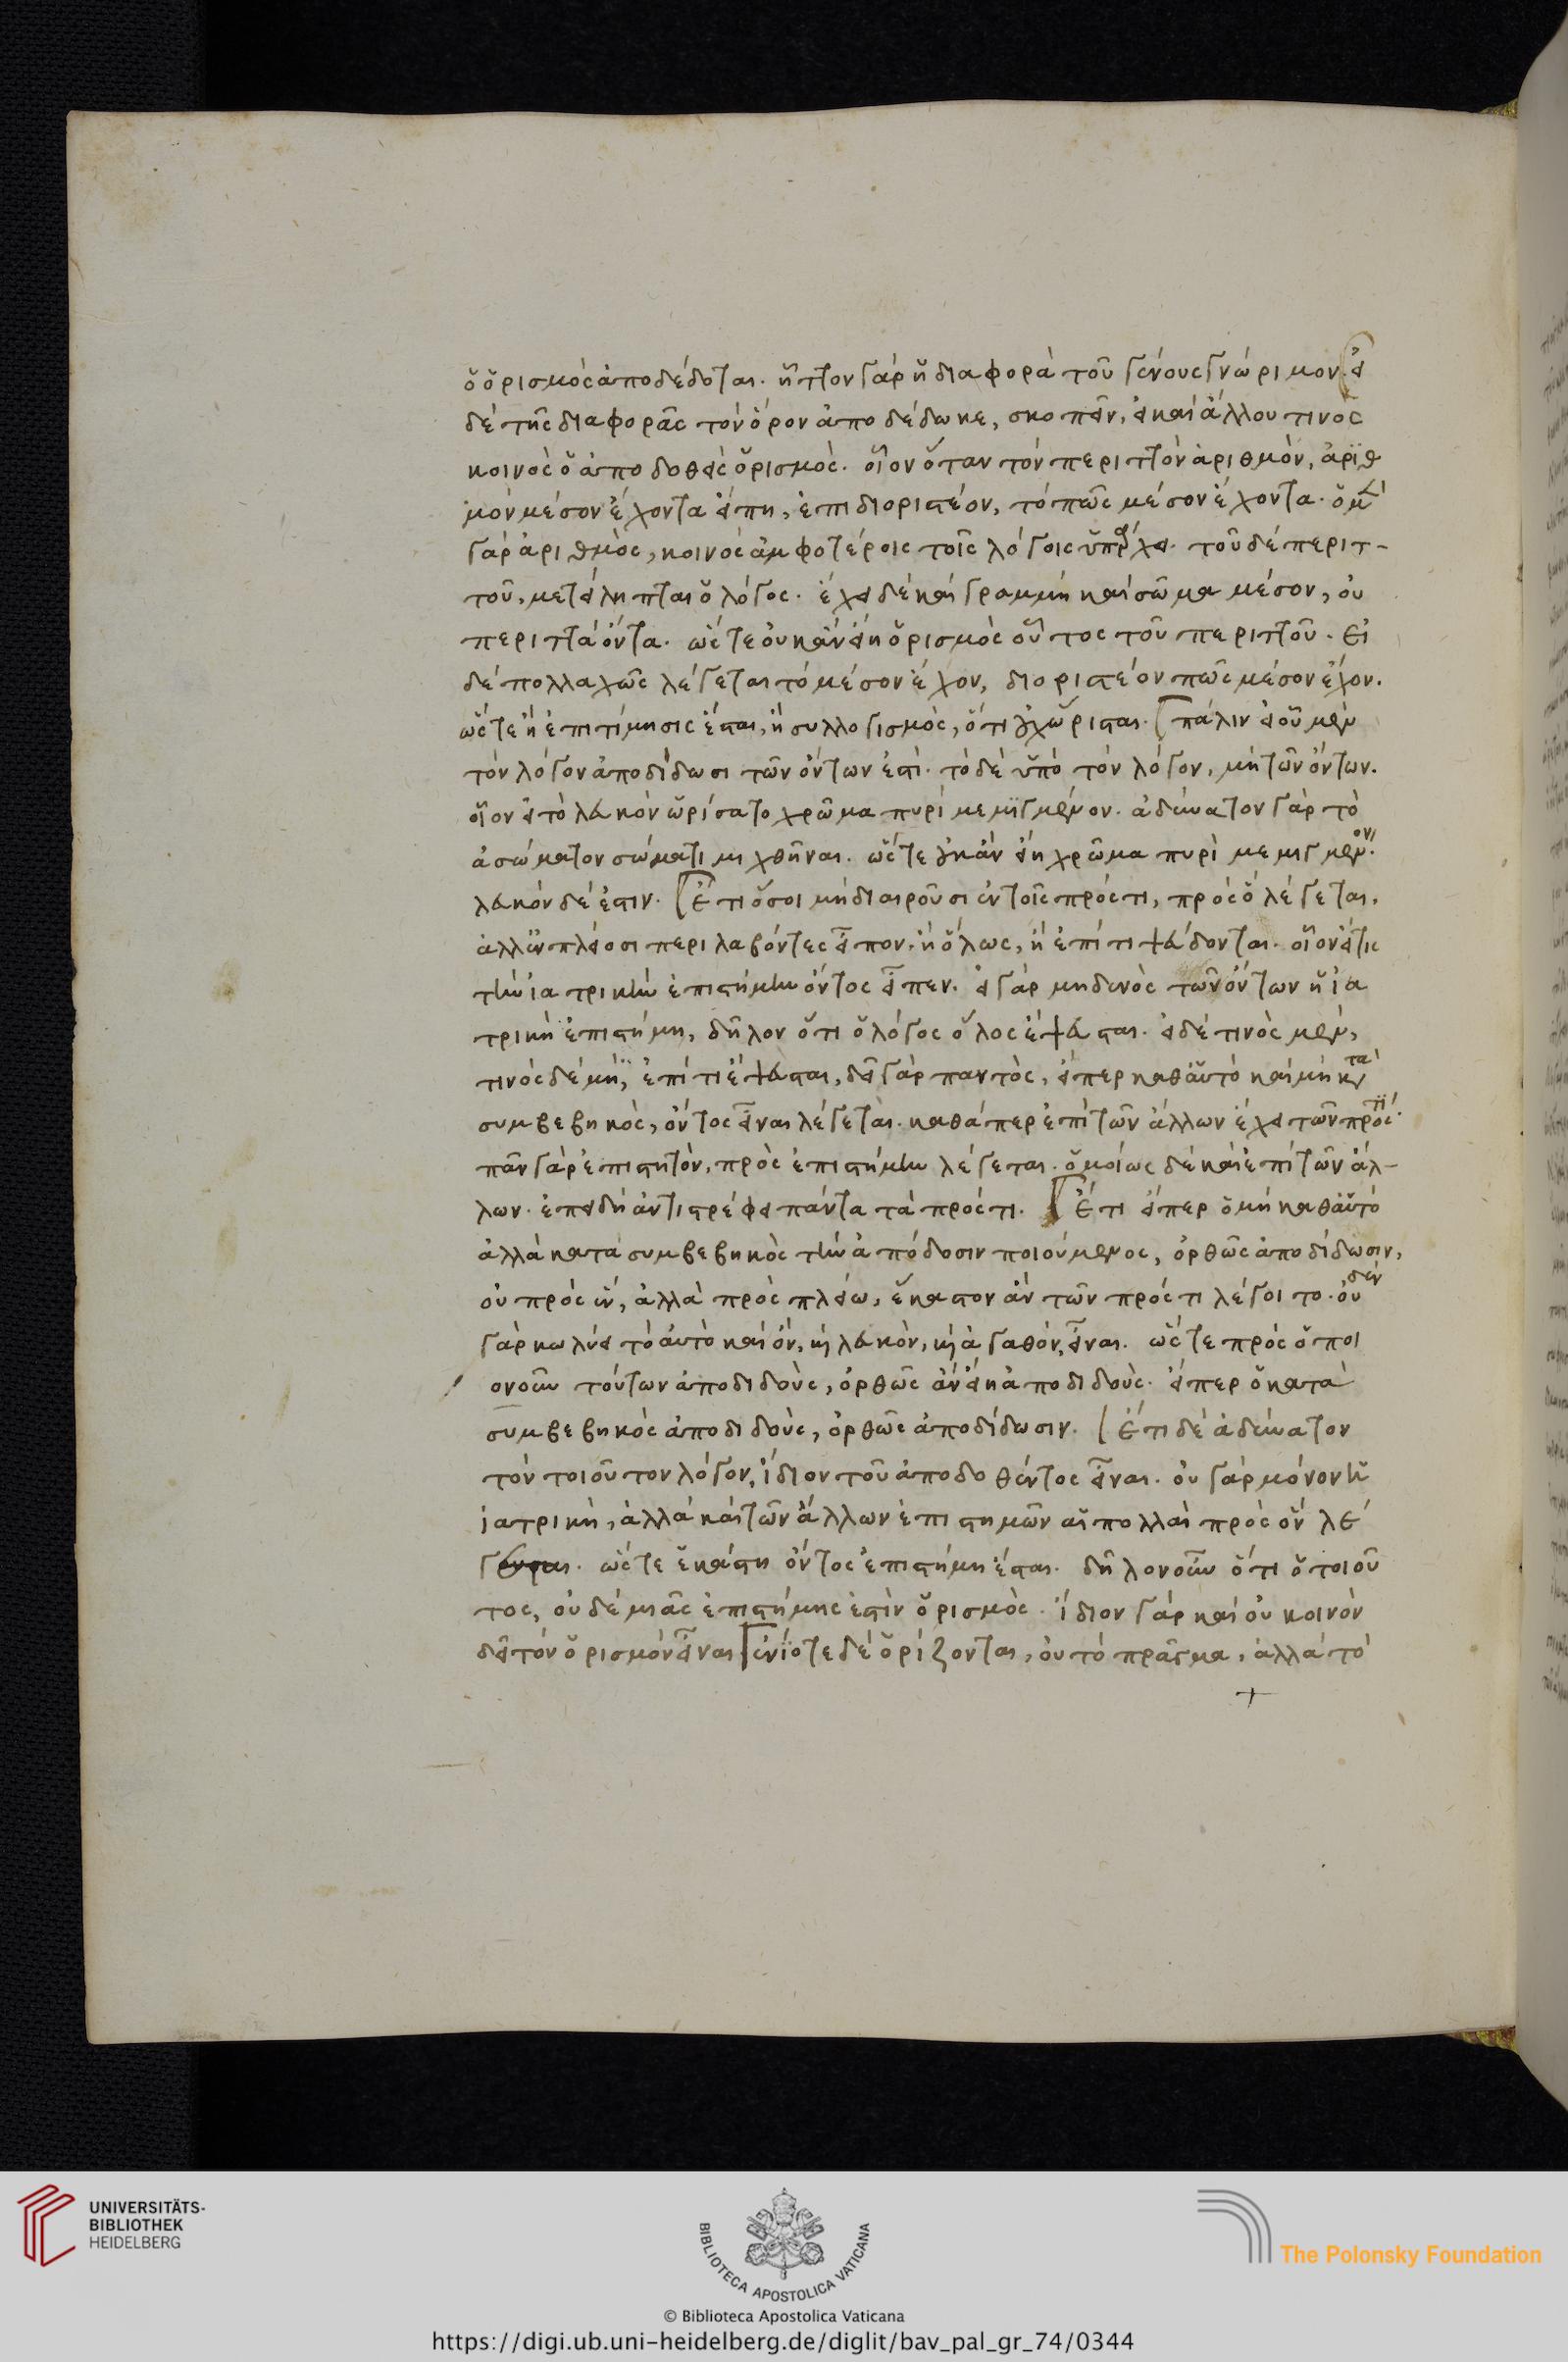 ὁ ὁρισμὸς ἀποδέδοται. ἧττον γὰρ ἡ διαφορὰ τοῦ γένους γνώριμον. εἰ
δὲ τῆς διαφορᾶς τὸν ὅρον ἀποδέδωκε, σκοπεῖν, εἰ καὶ ἄλλου τινὸς
κοινὸς ὁ ἀποδοθεὶς ὁρισμός. οἷον ὅταν τὸν περιττὸν ἀριθμὸν, ἀριθ
μὸν μέσον ἔχοντα εἴπῃ, ἐπιδιοριστέον, τὸ πῶς μέσον ἔχοντα. ὁ μὲν
γὰρ ἀριθμὸς, κοινὸς ἀμφοτέροις τοῖς λόγοις ὑπάρχει. τοῦ δὲ περιτ-
τοῦ, μετείληπται ὁ λόγος. ἔχει δὲ καὶ γραμμὴ καὶ σῶμα μέσον, οὐ
περιττὰ ὄντα. ὥστε οὐκ ἂν εἴη ὁρισμὸς οὗτος τοῦ περιττοῦ. Εἰ
δὲ πολλαχῶς λέγεται τὸ μέσον ἔχον, διοριστέον πῶς μέσον ἔχον.
ὥστε ἢ ἐπιτίμησις ἔσται, ἢ συλλογισμὸς, ὅτι οὐχ ὥρισται. πάλιν εἰ οὗ μὲν
τὸν λόγον ἀποδίδωσι τῶν ὄντων ἐστί. τὸ δὲ ὑπὸ τὸν λόγον, μὴ τῶν ὄντων.
οἷον εἰ τὸ λευκὸν ὡρίσατο χρῶμα πυρὶ μεμιγμένον. ἀδύνατον γὰρ τὸ
ἀσώματον σώματι μιχθῆναι. ὥστε οὐκ ἂν εἴη χρῶμα πυρὶ μεμιγμένον.
λευκὸν δέ ἐστιν. Ἔτι ὅσοι μὴ διαιροῦσι ἐν τοῖς πρός τι, πρὸς ὃ λέγεται,
ἀλλ' ἐν πλείοσι περιλαβόντες εἶπον, ἢ ὅλως, ἢ ἐπί τι ψεύδονται. οἷον εἴ τις
τὴν ἰατρικὴν ἐπιστήμην ὄντος εἶπεν. εἰ γὰρ μηδενὸς τῶν ὄντων ἡ ἰα
τρικὴ ἐπιστήμη, δῆλον ὅτι ὁ λόγος ὅλος ἔψευσται. εἰ δὲ τινὸς μὲν,
τινὸς δὲ μή, ἐπί τι ἔψευσται, δεῖ γὰρ παντός, εἴπερ καθ' αὑτὸ καὶ μὴ κατὰ
συμβεβηκὸς, ὄντος εἶναι λέγεται. καθάπερ ἐπὶ τῶν ἄλλων ἔχει τῶν πρός τι.
πᾶν γὰρ ἐπιστητὸν, πρὸς ἐπιστήμην λέγεται. ὁμοίως δὲ καὶ ἐπὶ τῶν ἄλ-
λων. ἐπειδὴ ἀντιστρέφει πάντα τὰ πρός τι. Ἔτι εἴπερ ὁ μὴ καθ' αὑτὸ
ἀλλὰ κατὰ συμβεβηκὸς τὴν ἀπόδοσιν ποιούμενος, ὀρθῶς ἀποδίδωσιν,
οὐ πρὸς ἓν, ἀλλὰ πρὸς πλείω, ἕκαστον ἂν τῶν πρός τι λέγοιτο. οὐδὲν
γὰρ κωλύει τὸ αὐτὸ καὶ ὂν, καὶ λευκὸν, καὶ ἀγαθὸν, εἶναι. ὥστε πρὸς ὁποι
ονοῦν τούτων ἀποδιδοὺς, ὀρθῶς ἂν εἴη ἀποδιδούς. εἴπερ ὁ κατὰ
συμβεβηκὸς ἀποδιδοὺς, ὀρθῶς ἀποδίδωσιν. Ἔτι δὲ ἀδύνατον
τὸν τοιοῦτον λόγον, ἴδιον τοῦ ἀποδοθέντος εἶναι. οὐ γὰρ μόνον ἡ
ἰατρικὴ, ἀλλὰ καὶ τῶν ἄλλων ἐπιστημῶν αἱ πολλαὶ πρὸς ὂν λέ
γονται. ὥστε ἑκάστη ὄντος ἐπιστήμη ἔσται. δῆλον οὖν ὅτι ὁ τοιοῦ
τος, οὐδὲ μιᾶς ἐπιστήμης ἐστὶν ὁρισμός. ἴδιον γὰρ καὶ οὐ κοινὸν
δεῖ τὸν ὁρισμὸν εἶναι ἐνίοτε δὲ ὁρίζονται, οὐ τὸ πρᾶγμα, ἀλλὰ τὸ
+
UNIVERSITÄTS-
BIBLIOTHEK
HEIDELBERG
BIBLIOTECA APOSTOLICA VATICANA
The Polonsky Foundation
© Biblioteca Apostolica Vaticana
https://digi.ub.uni-heidelberg.de/diglit/bav_pal_gr_74/0344